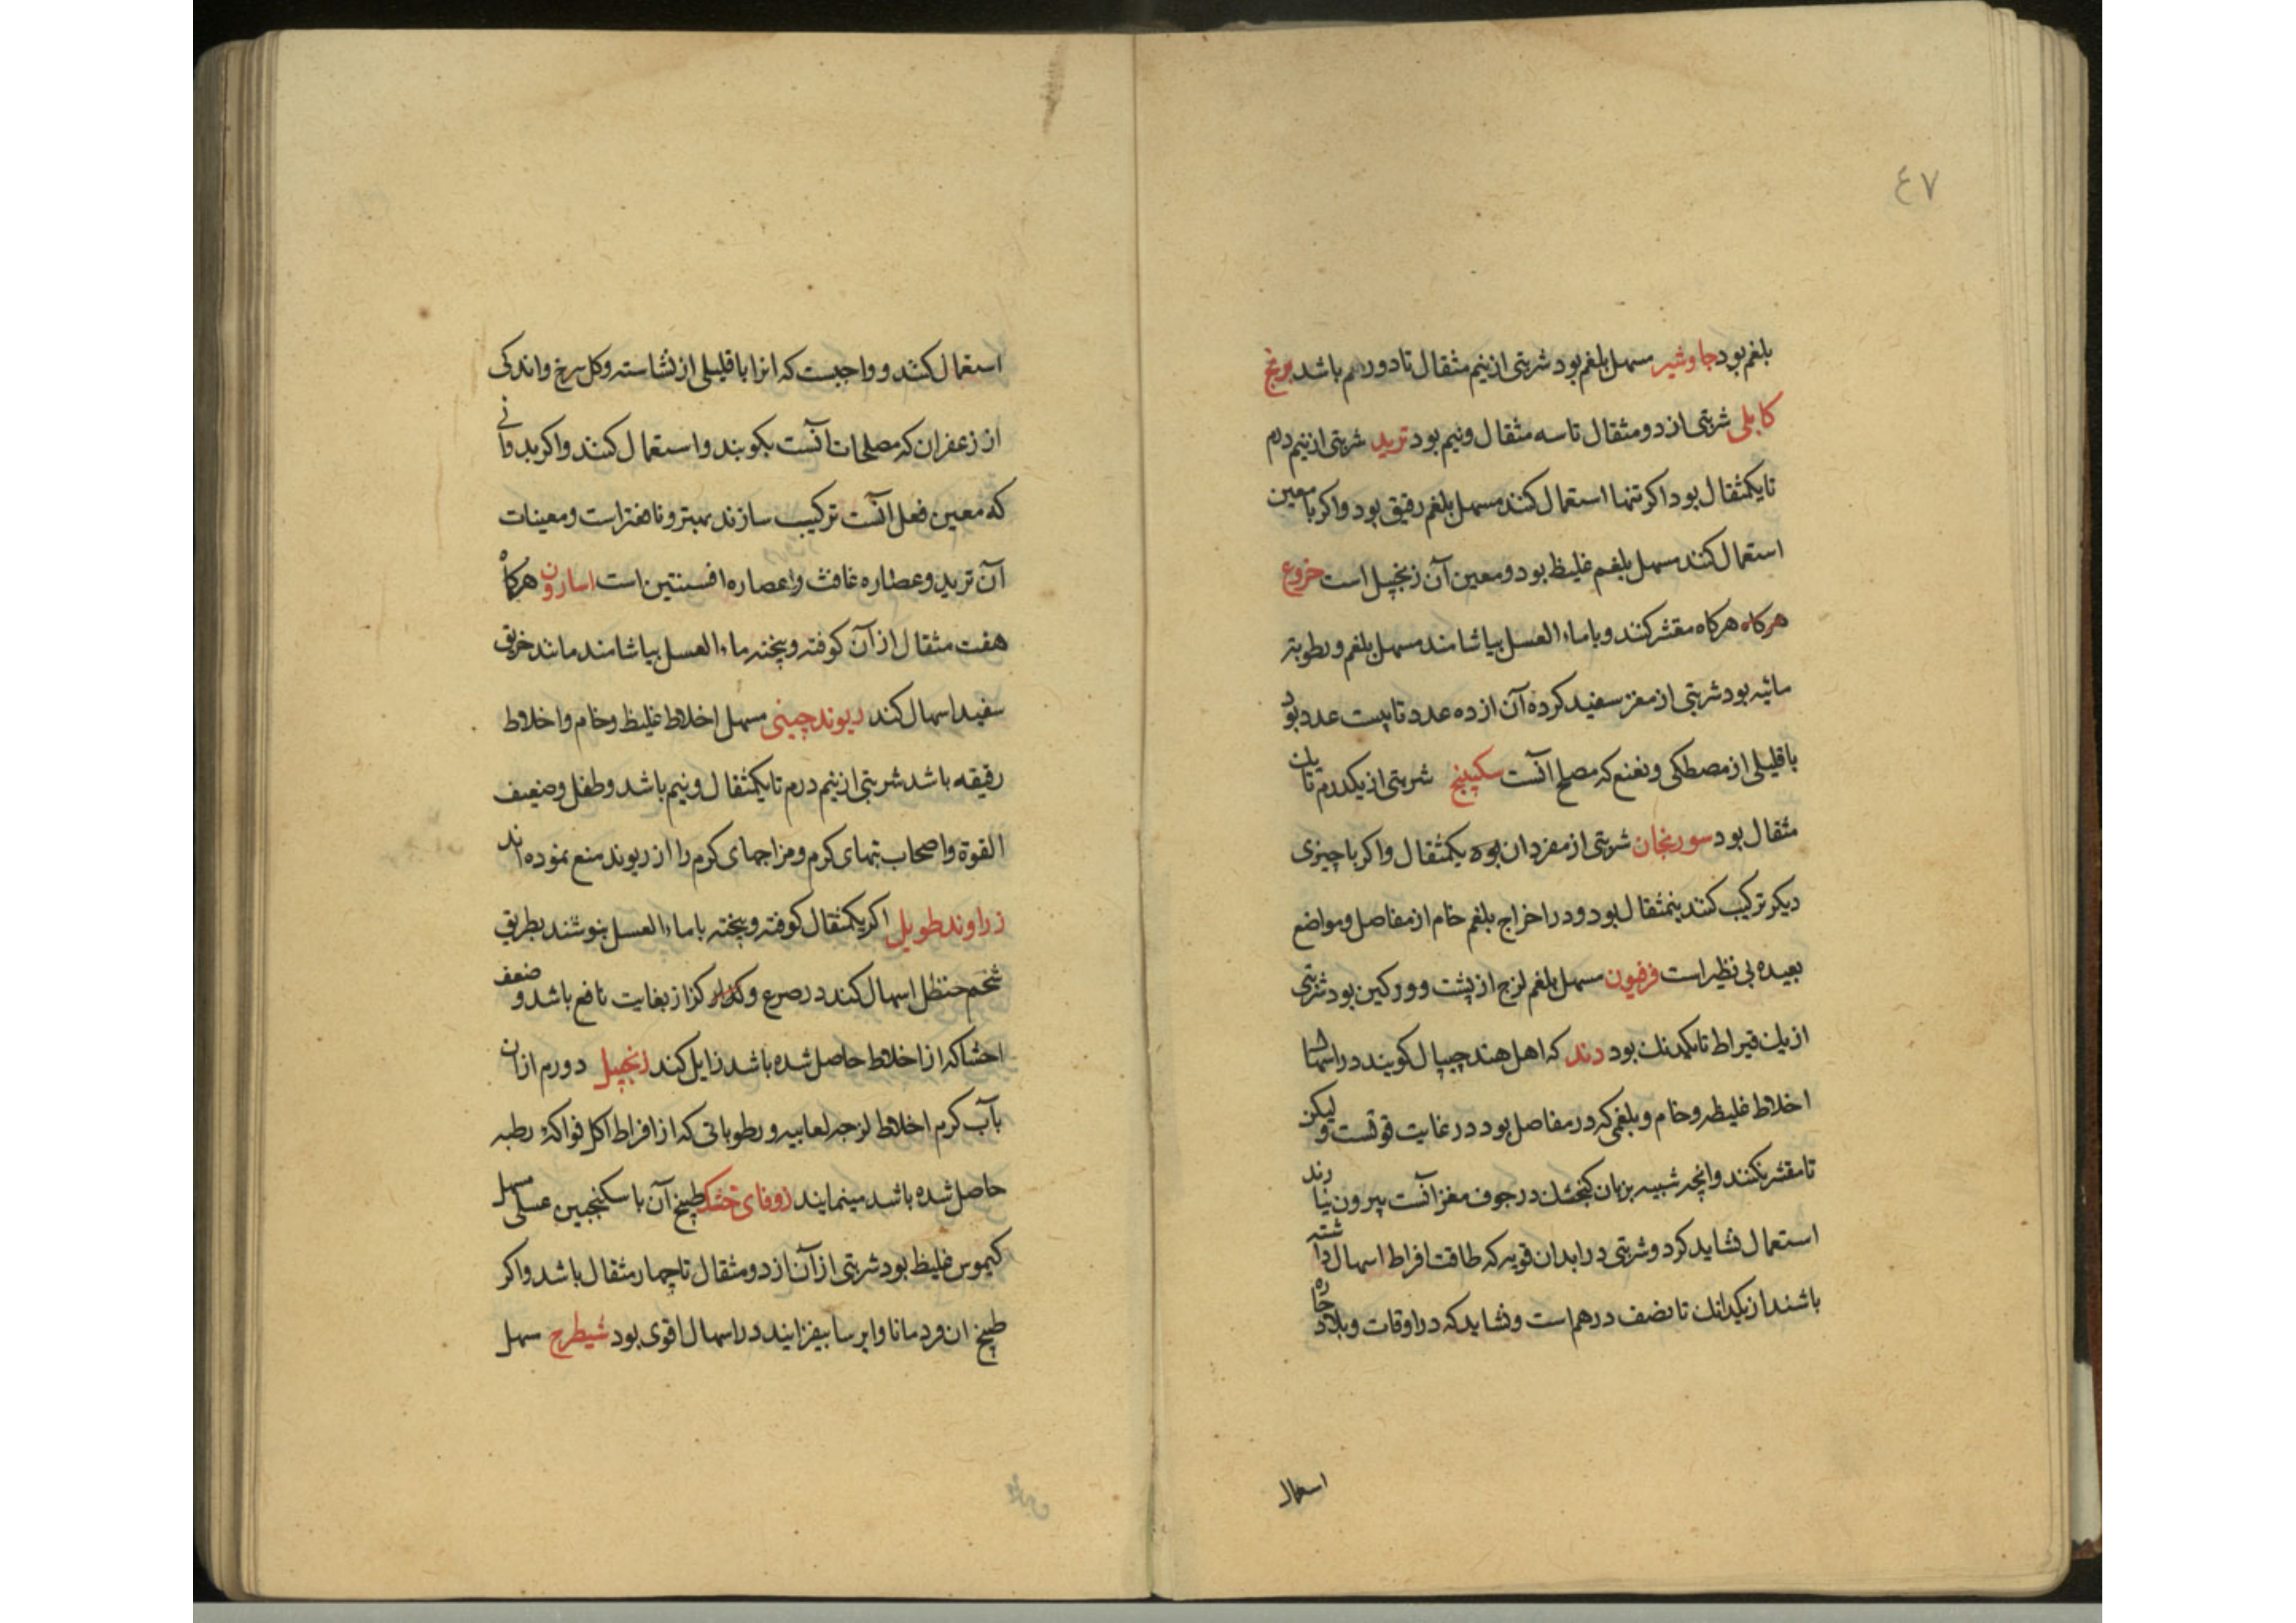 ٤٧
بلغم بود جاوشیر مسهل بلغم بود شربتی از نیم مثقال تا دو درهم باشد برنج
کابلی شربتی از دو مثقال تا سه مثقال و نیم بود تربد شربتی از نیم درم
تا یکمثقال بود اکر تنها استعمال کنند مسهل بلغم رقیق بود و اکر با معین
استعمال کنند مسهل بلغم غلیظ بود و معین آن زنجبیل است خروع
هرکاه هرکاه مقشر کنند و با ماء العسل بیاشامند مسهل بلغم و رطوبتـ
مائیه بود شربتی از مغز سفید کرده آن از ده عدد تا بیست عدد بود
با قلیلی از مصطکی و نعنع که مصلح آنست سکبینج شربتی از یکدرم تا یک
مثقال بود سورنجان شربتی از مفرد ان بوده یکمثقال و اکر با چیزی
دیکر ترکیب کنند نیمثقال بود و در اخراج بلغم خام از مفاصل و مواضع
بعیده بی نظیر است فرفیون مسهل بلغم لزج از پشت و ورکین بود شربتی
از یک قیراط تا یکدنک بود دند که اهل هند جیپال کویند در اسهال
اخلاط غلیظه و خام و بلغمی که در مفاصل بود در غایت قوتست و لیکن
تا مقشر نکنند و انچه شبیه بزبان کنجشک در جوف مغز آنست بیرون نیارند
استعمال نشاید کرد و شربتی در ابدان قویه که طاقت افراط اسهال داشته
باشند از یکدانک تا نصف درهم است و نشاید که در اوقات و بلاد حاره
استعمال
استعمال کنند و واجبست که انرا با قلیلی از نشاسته و کل سرخ و اندکی
از زعفران که مصلحات آنست بکوبند و استعمال کنند و اکر بدوانی
که معین فعل آنست ترکیب سازند بهتر و نافعتر است و معینات
آن تربد و عصاره غافث و اعصاره افسنتین است اسارون هرکاه
هفت مثقال از آن کوفته و بیخته بماء العسل بیاشامند مانند خربق
سفید اسهال کند ریوند چینی مسهل اخلاط غلیظ و خام و اخلاط
رقیقه باشد شربتی از نیم درم تا یکمثقال و نیم باشد و طفل و ضعیف
القوة و اصحاب تبهای کرم و مزاجهای کرم را از ریوند منع نموده اند
زراوند طویل اکر یکمثقال کوفته و بیخته با ماء العسل بنوشند بطریق
شحم حنظل اسهال کند در صرع و کزاز بغایت نافع باشد و ضعف
احشا که از اخلاط حاصل شده باشد زایل کند زنجبیل دو درم از ان
بآب کرم اخلاط لزجه لعابیه و رطوباتی که از افراط اکل فواکه رطبه
حاصل شده باشد مینمایند زوفای خشک طبیخ آن با سکنجبین عسلی مسهل
کیموس غلیظ بود شربتی از آن از دو مثقال تا چهار مثقال باشد و اکر
طبیخ ان قردمانا و ایرسا بیفزایند در اسهال اقوی بود شیطرج مسهل